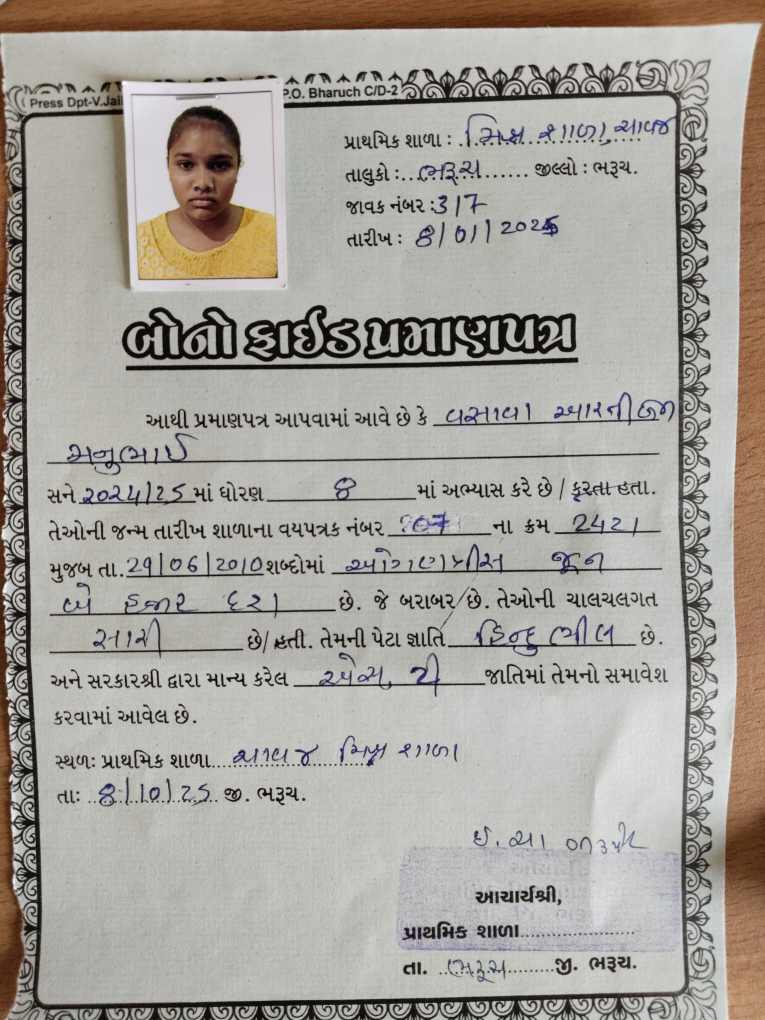 Press Dpt-V.Jail
P.O. Bharuch C/D-2
પ્રાથમિક શાળા : મિશ્ર શાળા, ચાવજ
તાલુકો : ભરૂચ જીલ્લો : ભરૂચ.
જાવક નંબર : 317
તારીખ : 8/01/2025
બોનો ફાઈડ પ્રમાણપત્ર
આથી પ્રમાણપત્ર આપવામાં આવે છે કે વસાવા આરનીજા
મનુભાઈ
સને 2024/25 માં ધોરણ 8 માં અભ્યાસ કરે છે / કરતા હતા.
તેઓની જન્મ તારીખ શાળાના વયપત્રક નંબર ના ક્રમ 2421
મુજબ તા. 29/06/2010 શબ્દોમાં ઓગણત્રીસ જૂન
બે હજાર દસ છે. જે બરાબર છે. તેઓની ચાલચલગત
સારી છે/ હતી. તેમની પેટા જ્ઞાતિ હિન્દુ ભીલ છે.
અને સરકારશ્રી દ્વારા માન્ય કરેલ એસ. ટી જાતિમાં તેમનો સમાવેશ
કરવામાં આવેલ છે.
સ્થળઃ પ્રાથમિક શાળા ચાવજ મિશ્ર શાળા
તાઃ 8/10/25 જી. ભરૂચ.
ઈ. ચા
આચાર્યશ્રી,
પ્રાથમિક શાળા
તા. ભરૂચ જી. ભરૂચ.